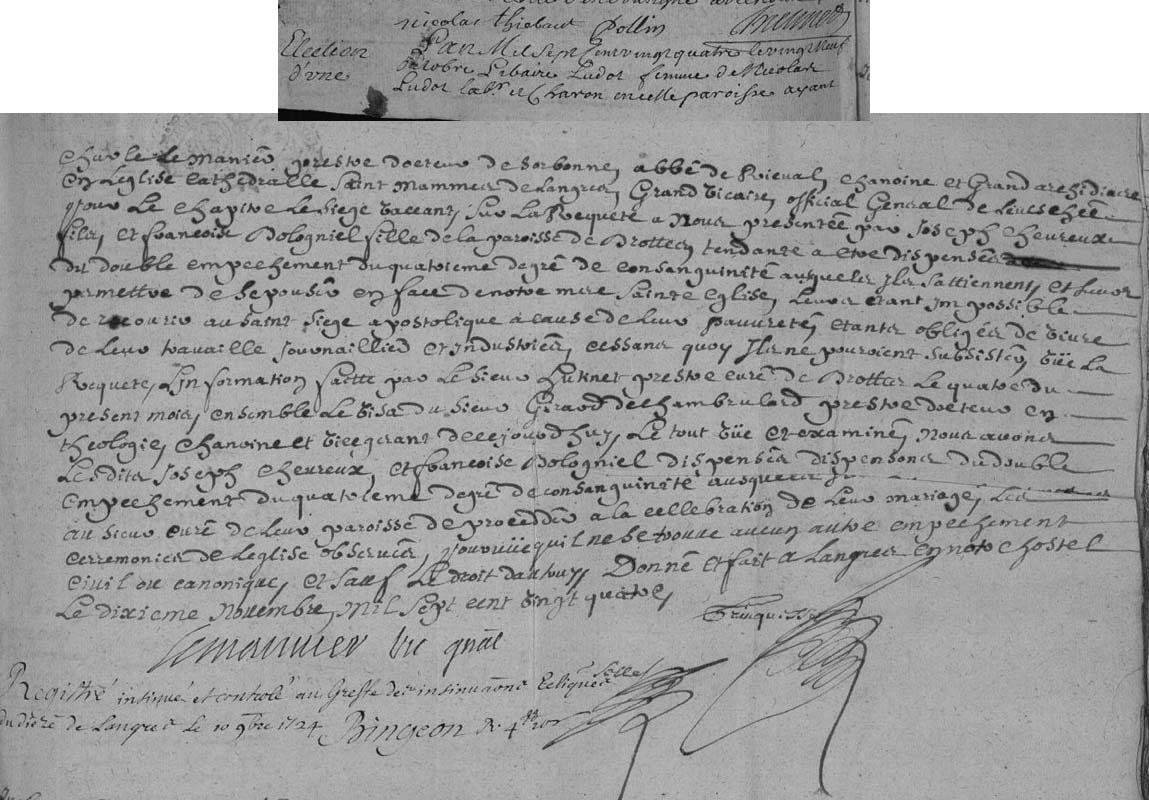 nicolas thiebaut pollin
Election
d'vne
L'an Mil sept cent vingt quatre le vingt neuf
octobre Libaire Ludot femme de Nicolas
Ludot lab.r et Charon en cette paroisse ayant
Charle Le Manier prestre docteur de Sorbonne, abbé de Rieval, Chanoine et Grand archidiacre
En L'eglise Cathedralle Saint mammes de Langres, Grand Vicaire, official General de L'evesché
pour Le Chapitre Le Siege Vaccant, sur La Requete a Nous presentée par Joseph Cheureux
fils, et francoise Bologniel fille de la paroisse de Brottes, tendante a etre dispensés
du double empechement du quatrieme degré de consanguinité auquels Ils sattiennent, et Leur
permettre de sepouser en face de notre mere Sainte Eglise, Leurs etant Impossible
de recourir au saint Siege apostolique a cause de Leur pauvreté, etants obligés de Vivre
de Leur travaille Journaillier et Industrier, cessans quoy Ils ne pouroient subsister, Vüe La
Requete, L'Information faitte par Le Sieur prestre curé de Brottes Le quatre du
present mois, ensemble Le Visa du Sieur Girard de Chambrulard prestre docteur en
theologie, Chanoine et Vicegerant de cejourd'huy, Le tout Vüe et examiné, Nous avons
Lesdits Joseph Cheureux, et francoise Bologniel dispensés dispensons du double
empechement du quatrieme degré de consanguinité
au Sieur curé de Leur paroisse de proceder a la cellebration de Leur mariage, Les
cerremonies de L'eglise observées, pourvüe quil ne se trouve aucun autre empechement
Civil ou canonique, et Sauf Le droit d'autruy, Donné et fait a Langres En notre hostel
Le dixieme Novembre, Mil Sept cent Vingt quatre,
Lemannier vic gnãl
Registré insinué et controlé au Greffe des insinuãons Ecliques
du dioze de Langres le 10 9bre 1724 Bingeon